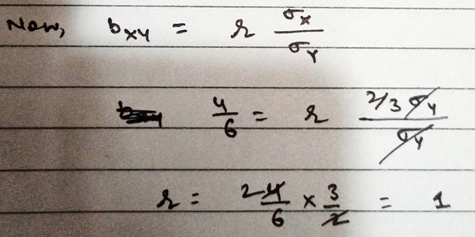 Now, bxy = r σx/σy
4/6 = r (2/3 σy)/σy
r = 2 4/6 × 3/2 = 1